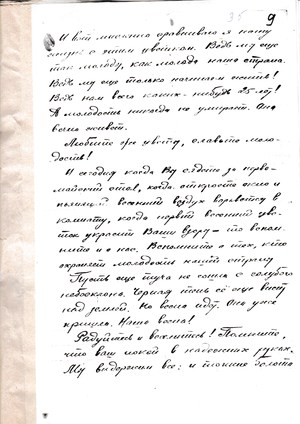 9
И вот мысленно сравниваю я нашу
жизнь с этим цветком. Ведь мы еще
так молоды, как молода наша страна.
Ведь мы еще только начинаем жить!
Ведь нам всего каких-нибудь 25 лет!
А молодость никогда не умирает. Она
вечно живет.
Любите же цветы, славьте моло-
дость!
И сегодня когда Вы сядете за перво-
майский стол, когда откроете окно и
весенний воздух ворвется в
комнату, когда первый весенний цве-
ток украсит Вашу — то вспом-
ните и о нас. Вспомните о тех, кто
охраняет молодость нашей страны
Пусть еще туча не сошла с голубого
небосклона. Черная тень её еще висит
над землей. Но весна идет. Она уже
пришла. Наша весна!
Радуйтесь и веселитесь! Помните,
что ваш покой в надежных руках.
Мы выдержим все: и топкие болота